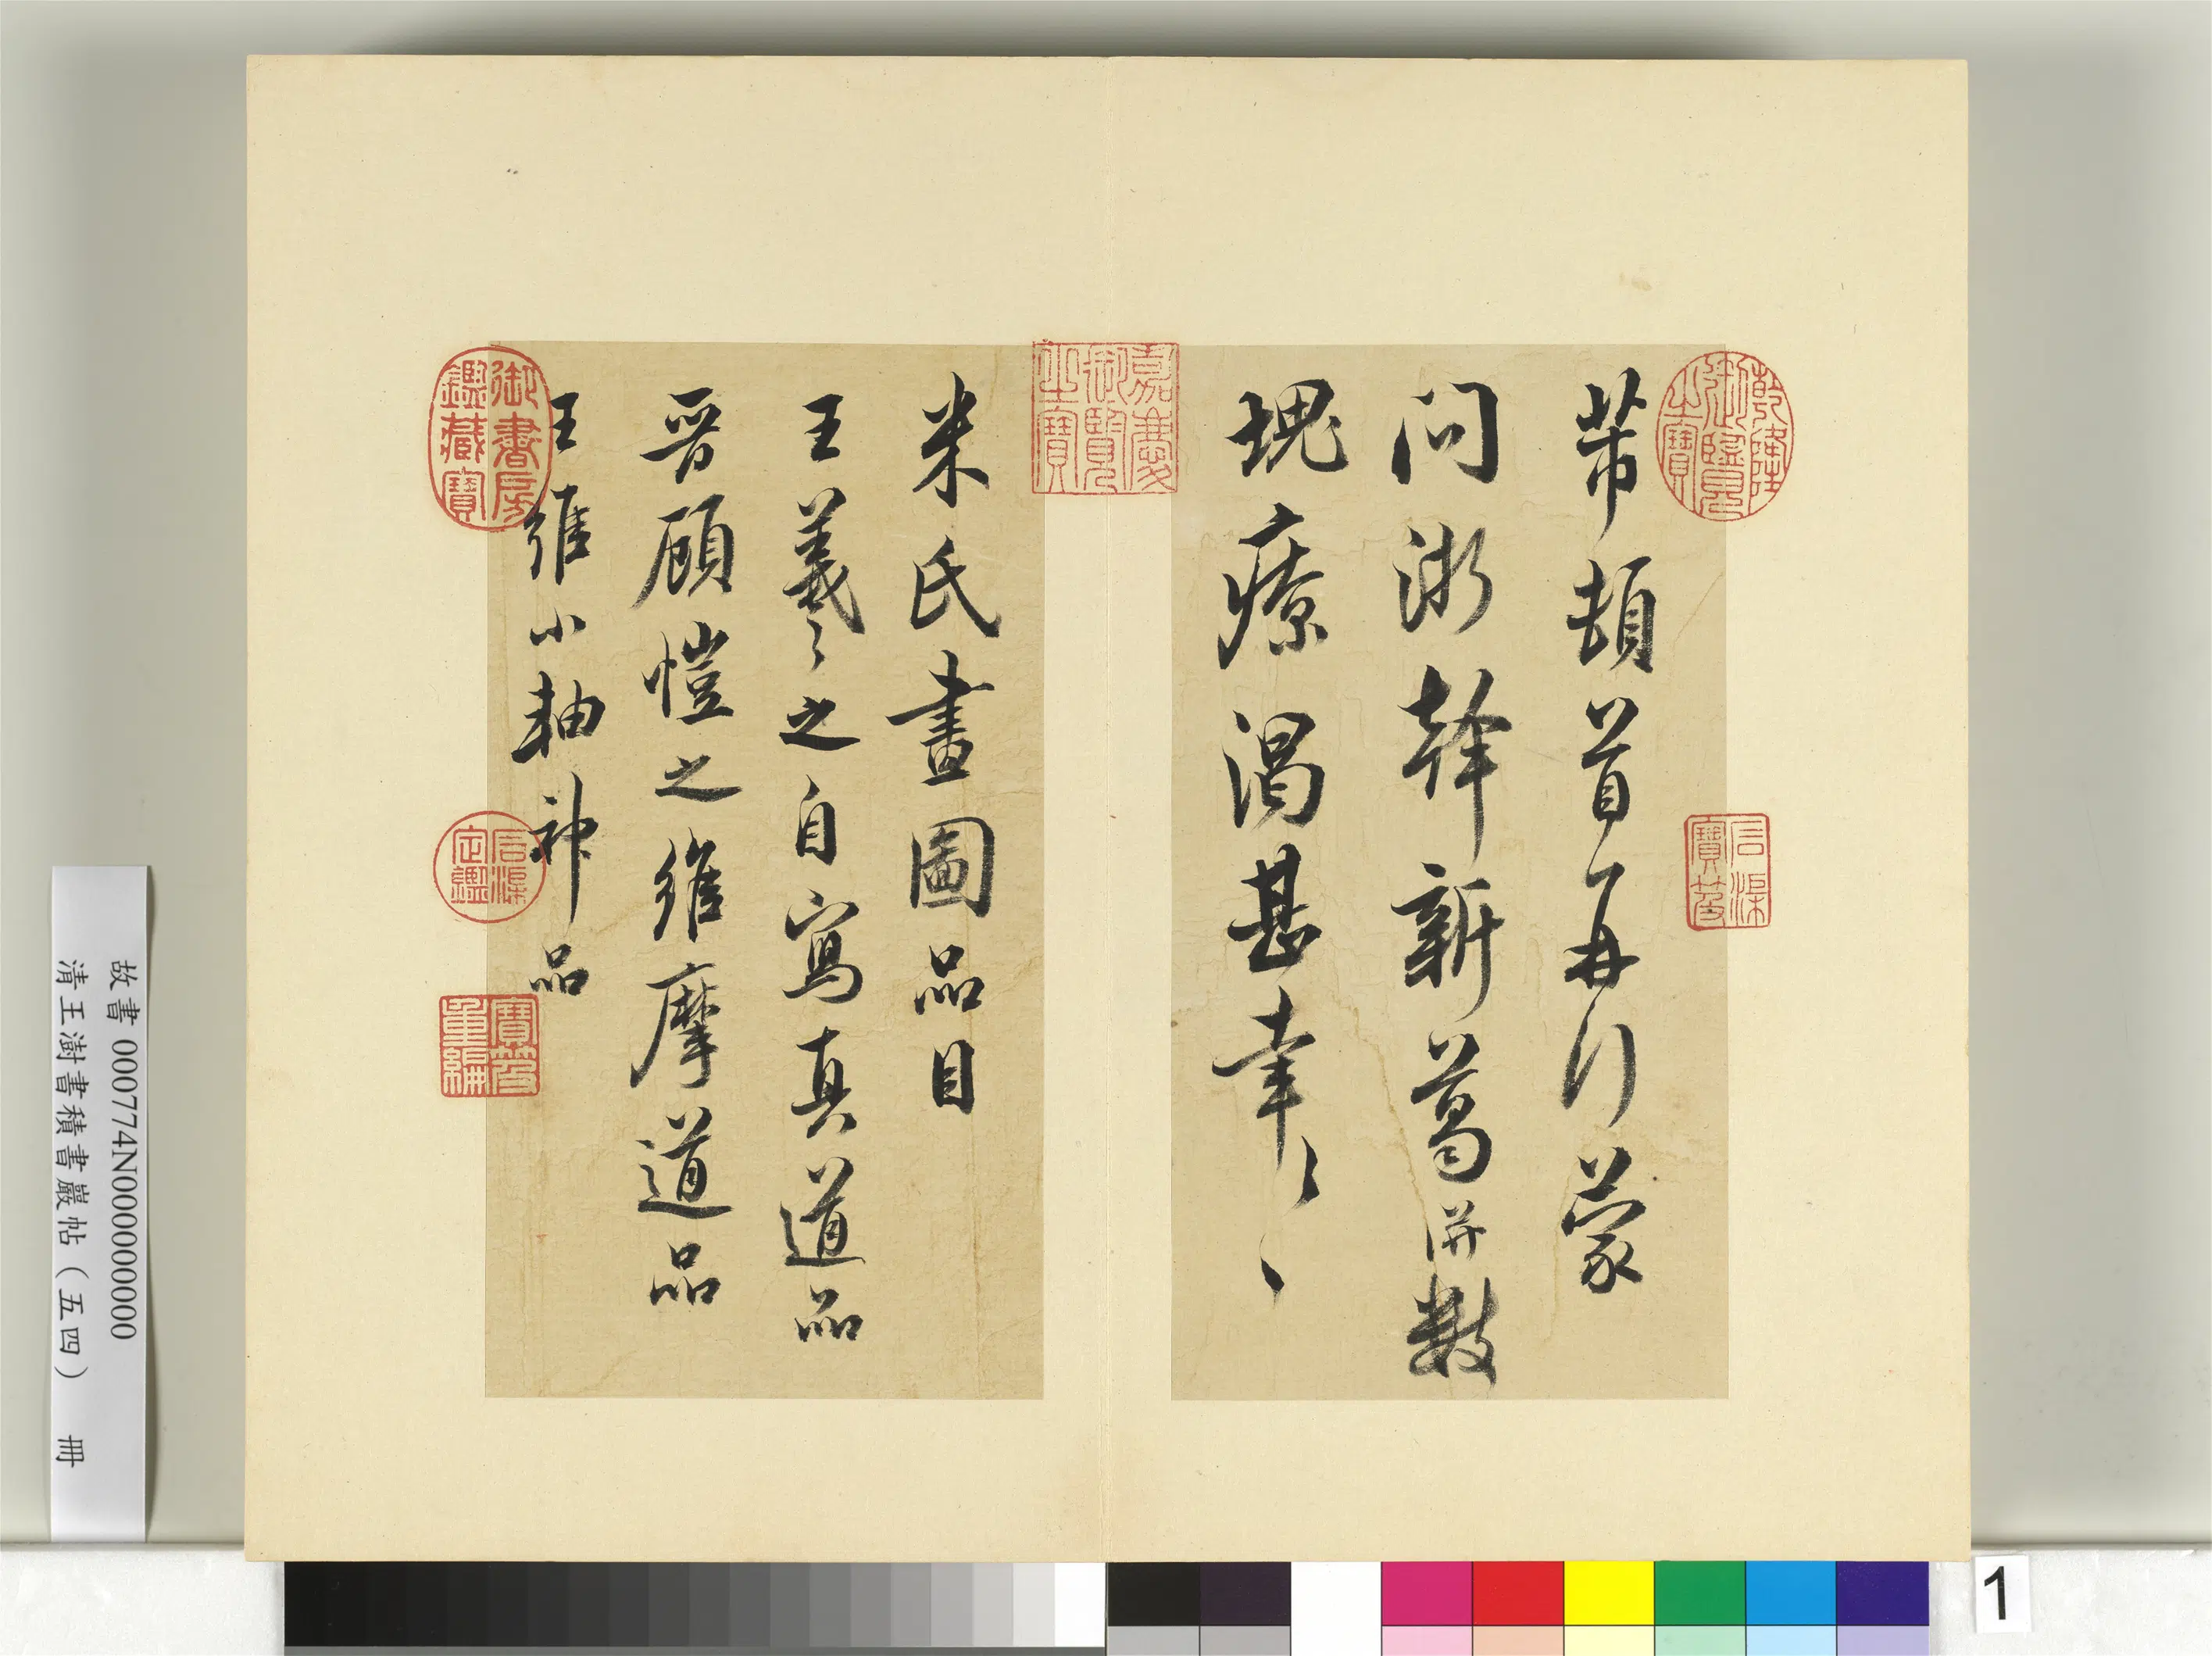 芾頓首再行蒙
問浙幹新葛併數
塊療渴甚幸〻〻
米氏畫圖品目
王羲〻之自寫真道品
晉顧愷之維摩道品
王維小軸神品
乾隆御覽之寶
石渠寶笈
嘉慶御覽之寶
御書房鑑藏寶
石渠定鑑
寶笈重編
故書 000774N000000000
清王澍書積書巖帖（五四） 冊
1